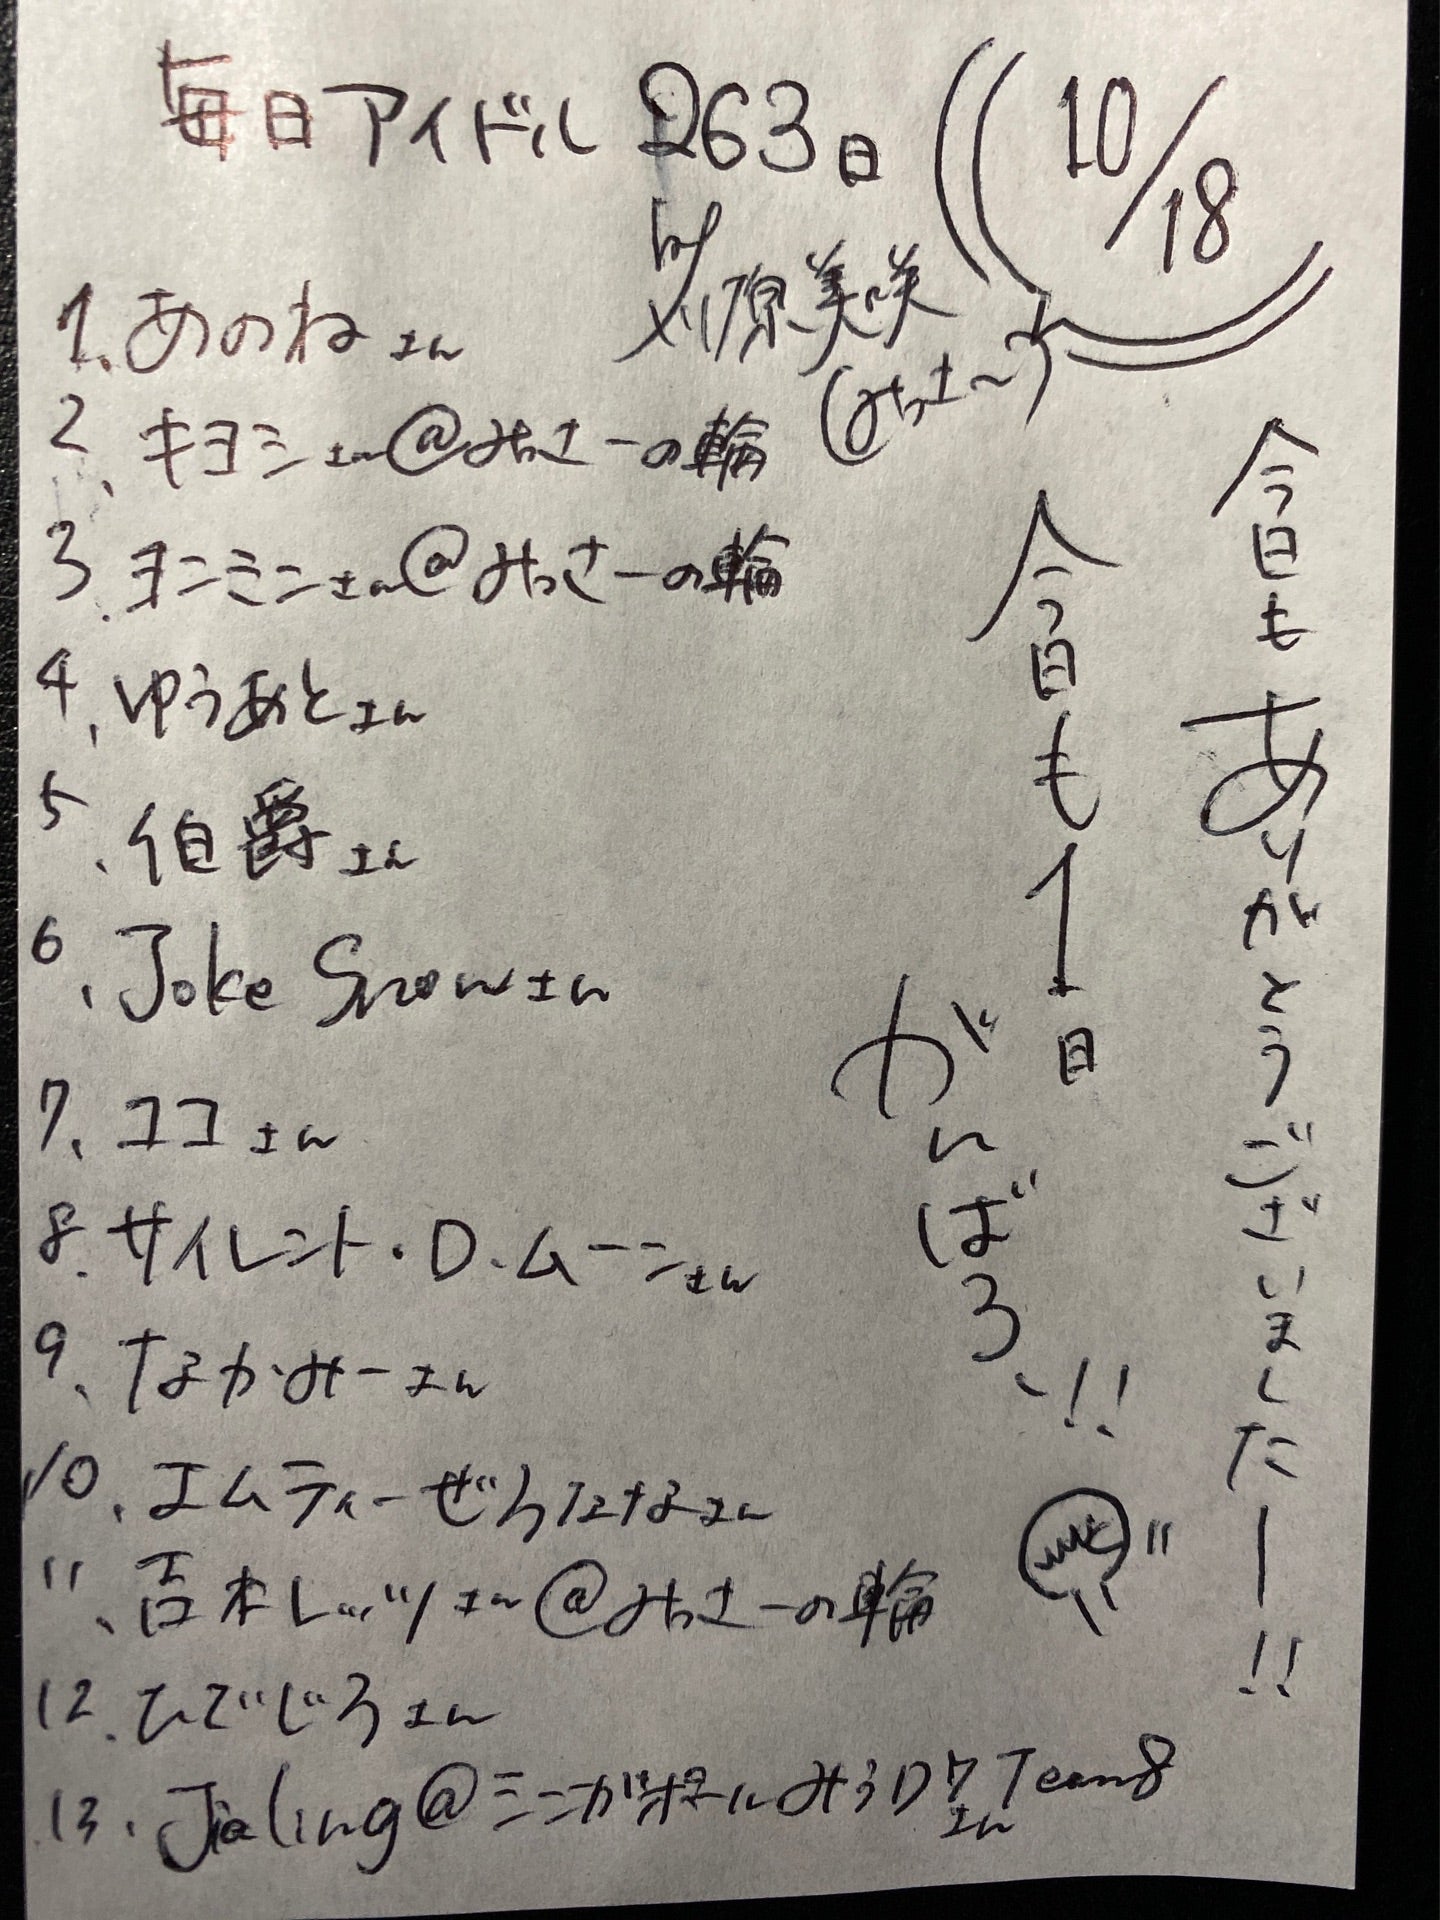 毎日アイドル 263日
10/18
by 刈原美咲
(みっさ〜)
1、あのねさん
2、キヨシさん@みっさーの輪
3、ヨンミンさん@みっさーの輪
4、ゆうあとさん
5、伯爵さん
6、Joke Snowさん
7、ココさん
8、サイレント・D・ムーンさん
9、なかみーさん
10、エムティーぜろななさん
11、吉本レッツさん@みっさーの輪
12、ひでじろさん
13、Jialing@シンガポールみうD7 Team8
さん
今日もありがとうございましたー!!
今日も1日
がんばろ、!!